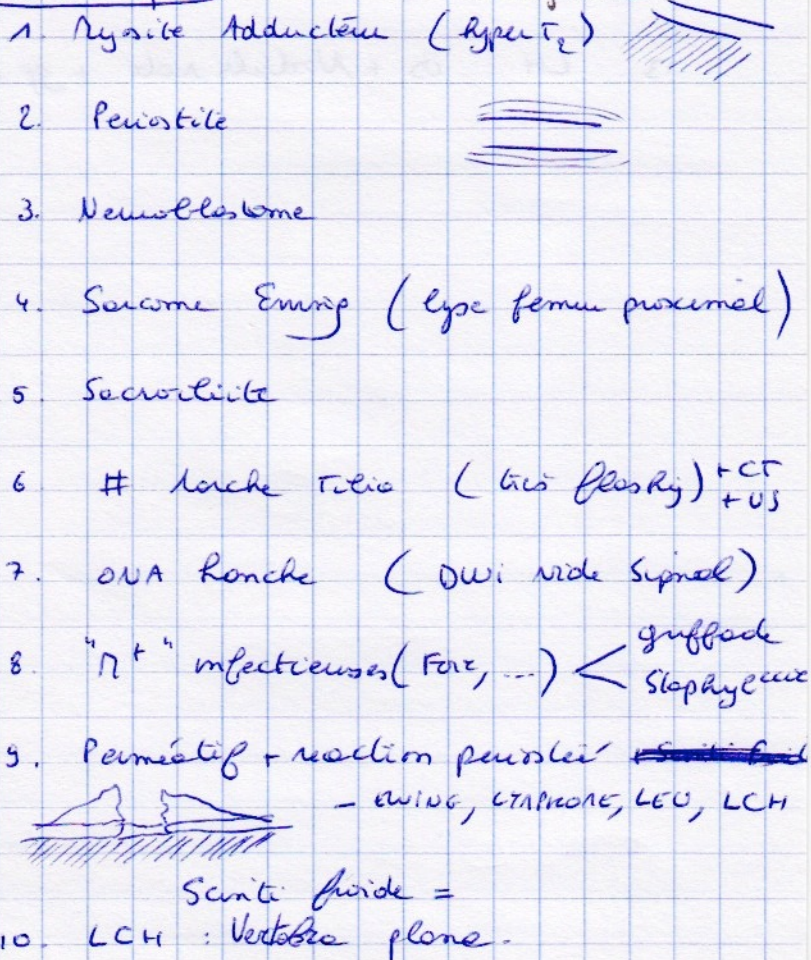 1. Myosite Adducteur (hyper T2)
2. Periostite
3. Neuroblastome
4. Sarcome Ewing (lyse femur proximal)
5. Sacroiliite
6 # Tibia (très flashy) + CT
+ US
7. ONA hanche (DWI vide signal)
8. "M+" infectieuses (Foie, ...) < griffade
Staphylocoque
9. Perméatif + reaction periostée
- EWING, LYMPHOME, LEU, LCH
Scinti froide =
10. LCH : Vertebra plana.